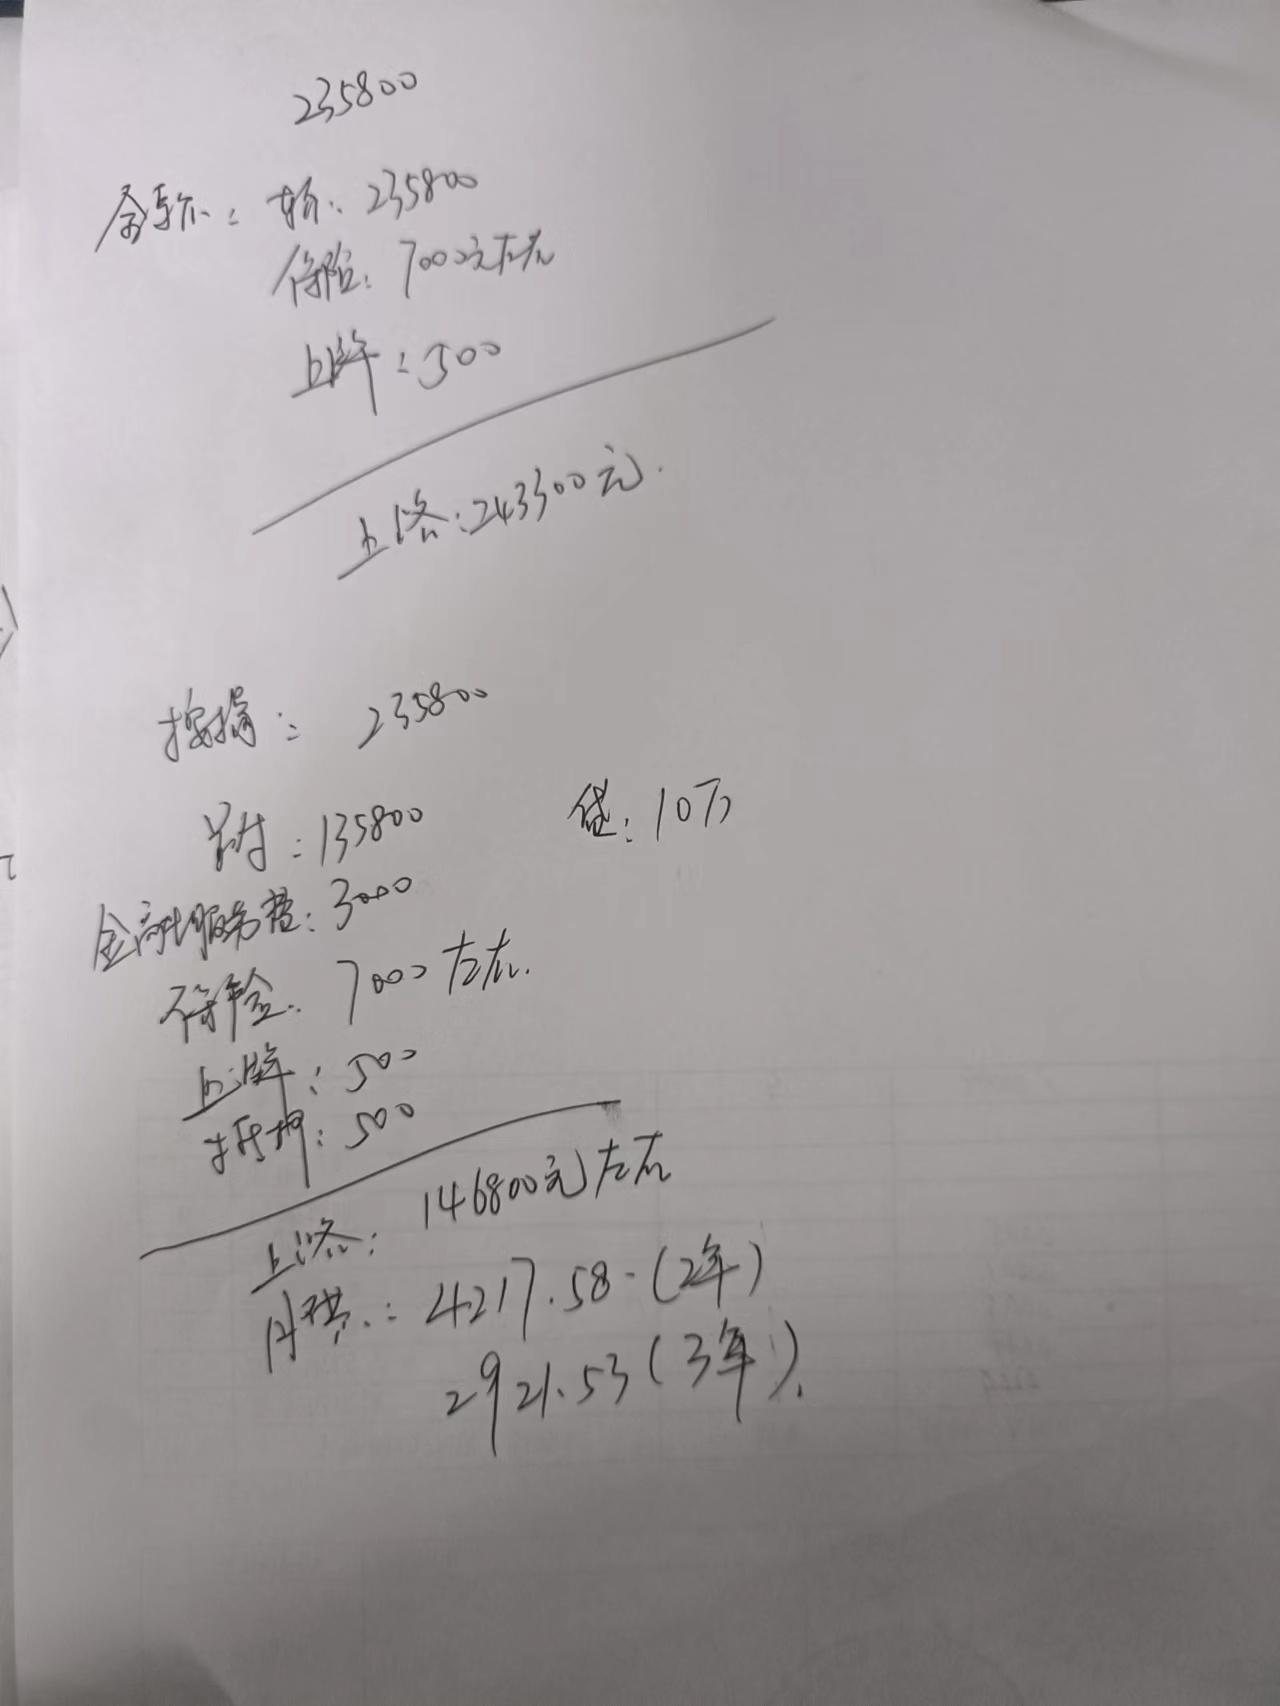 235800
全款: 车价: 235800
保险: 7000元左右
上牌: 500
上路: 243300元.
按揭: 235800
首付: 135800 贷: 10万
金融服务费: 3000
保险: 7000左右.
上牌: 500
抵押: 500
上路: 146800元左右
月供: 4217.58-(2年)
2921.53(3年).